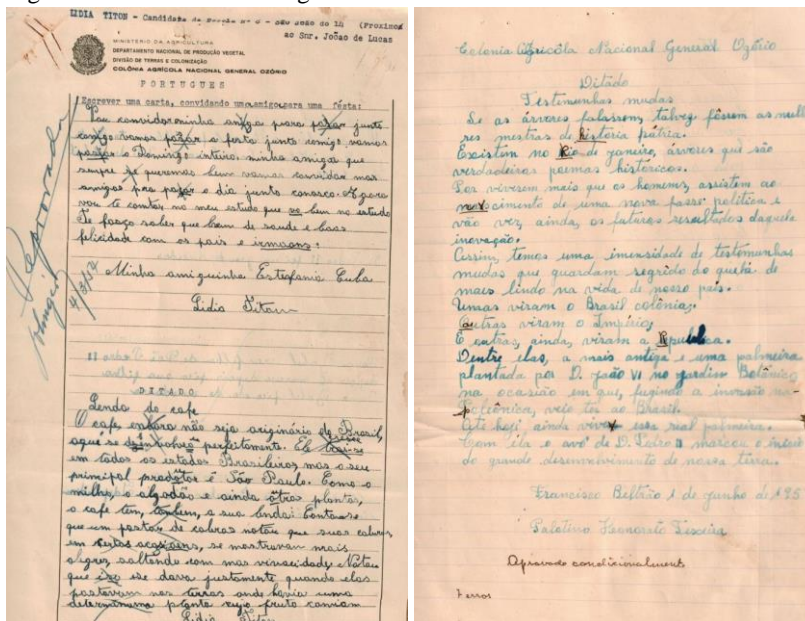 LIDIA TITON - Candidata da Escola Nº - São João do 14 (Proximo
ao Snr. João de Lucas
MINISTERIO DA AGRICULTURA
DEPARTAMENTO NACIONAL DE PRODUÇÃO VEGETAL
DIVISÃO DE TERRAS E COLONIZAÇÃO
COLÔNIA AGRÍCOLA NACIONAL GENERAL OZÓRIO
PORTUGUES
Escrever uma carta, convidando um amigo para uma fésta:
Vou convidar minha amiga para pazar junto
comigo vamos pazar a festa junto comigo, vamos
pazar o Domingo inteiro. minha amiga que
sempre se queremos bem vamos convidar mas
amigas pra pazar o dia junto conosco. Agora
vou te contar no meu estudo que vo bem no estudo
Te faago saber que bem de saude e boas
felicidade com os pais e irmaons.
Minha amiguinha Estefania Cuba
Lidia Titon
Reprovada
4/3/52
DITADO
Lenda do cafe
O cafe, enbora não seja originário do Brasil,
aque se perfeitamente. Ele
em todos os estados Brasileiros mas o seu
primipal produtor e São Paulo. Como o
milho, o algodão e ainda otras plantas,
o cafe tem, tanbem, a sua lenda: Contase
que um pastor de cabras notou que suas cabras,
em certas ocasioens, se mostravam mais
alegres, saltando com mas vivacidade. Notou
que izo ese dava justamente quando elas
pastavam nas terras onde havia uma
determinama planta cujo fruto comiam
Lidia Titon
Colonia Agricóla Nacional General Ozório
Ditado
Testemunhas mudas
Se as árvores falassem, talvez fôssem as melho
res mestras de história pátria.
Existem no Rio de janeiro, árvores que são
verdadeiros poemas históricos.
Por viverem mais que os homems, assistem ao
nascimento de uma nova fasse política e
vão ver, ainda, os futuros resultados daquela
inovação.
Assim, temos uma imensidade de testemunhas
mudas que guardam segrido do quehá de
mais lindo na vida de nosso país.
Umas viram o Brasil colônia,
Outras viram o Império,
E outras, ainda, viram a Republica.
Dentre elas, a mais antiga e uma palmeira
plantada por D. João VI no jardim Botânico,
na ocasião em que, fugindo a invasão na-
poleônica, veio ter ao Brasil.
Até hoji, ainda vive essa rial palmeira.
Com ila o avô de D. Pedro II marcou o início
do grande desenvolvimento de nossa terra.
Francisco Beltrão 1 de junho de 195
Teixeira
Aprovado condicionalment
erros